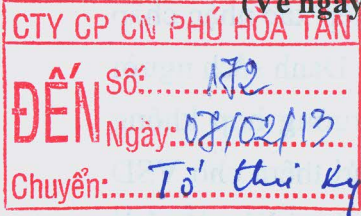 (Về ngày
CTY CP CN PHÚ HÒA TÂN
ĐẾN
Số: 172
Ngày: 07/02/13
Chuyển: Tổ thư ký